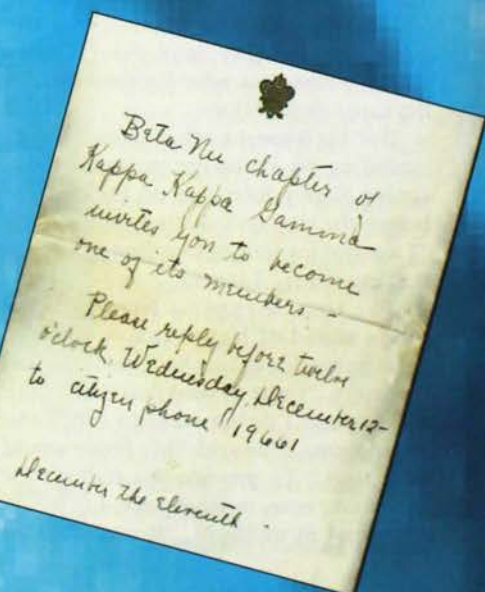 Beta Nu chapter of
Kappa Kappa Gamma
invites you to become
one of its members. -
Please reply before twelve
o'clock, Wednesday, December 12-
to citizen phone 19661
December the Eleventh.